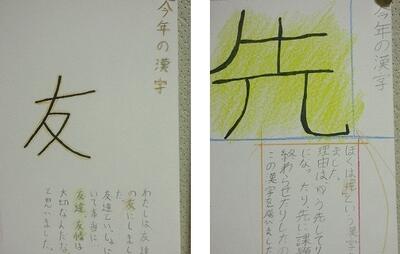 今年の漢字
友
わたしは友達
の友にしまし
た。
友達といっしょに
いて本当に
友達、友情は
大切なんだな
と思いました。
今年の漢字
先
ぼくは先という漢字
ました。
理由はゆう先してり
にな。たり、先に課題
終わらせたりしたの
この漢字を